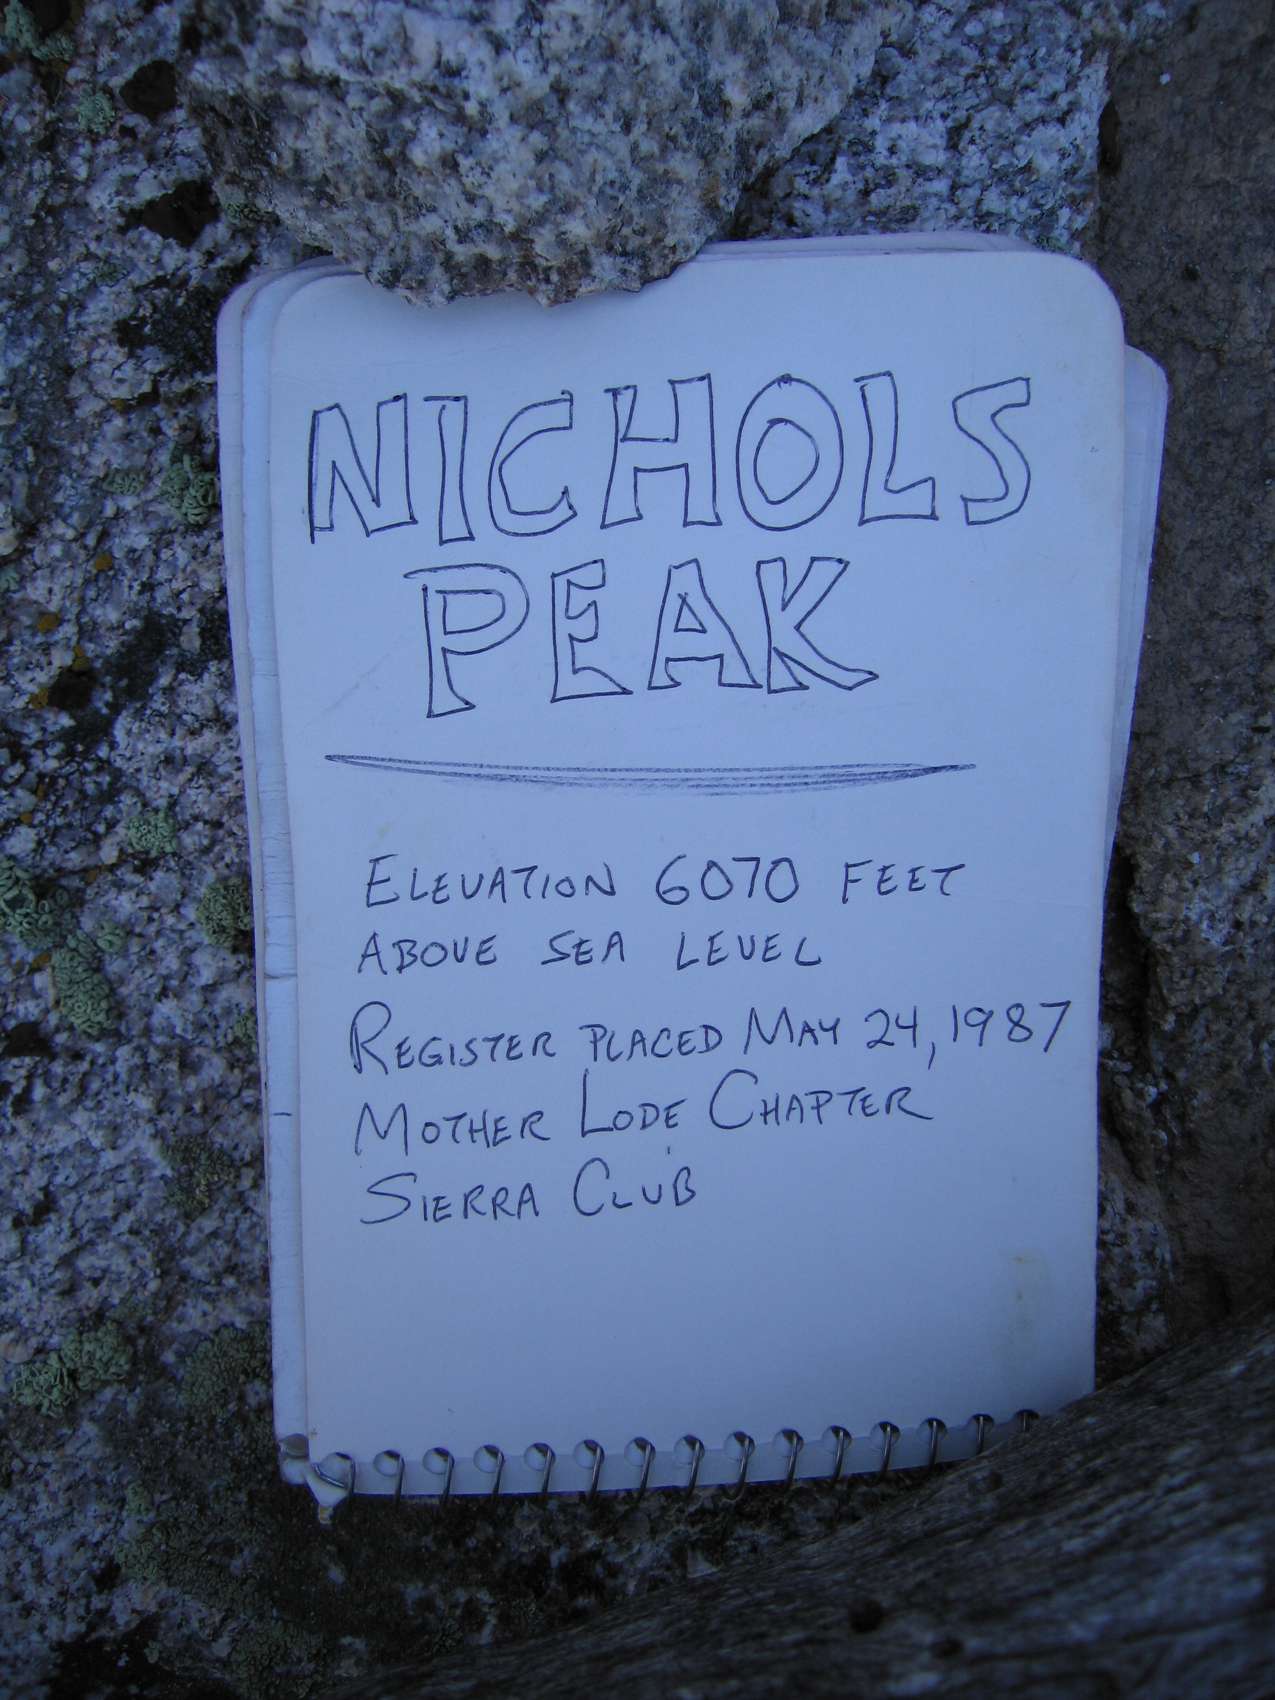 NICHOLS
PEAK
ELEVATION 6070 FEET
ABOVE SEA LEVEL
REGISTER PLACED MAY 24, 1987
MOTHER LODE CHAPTER
SIERRA CLUB